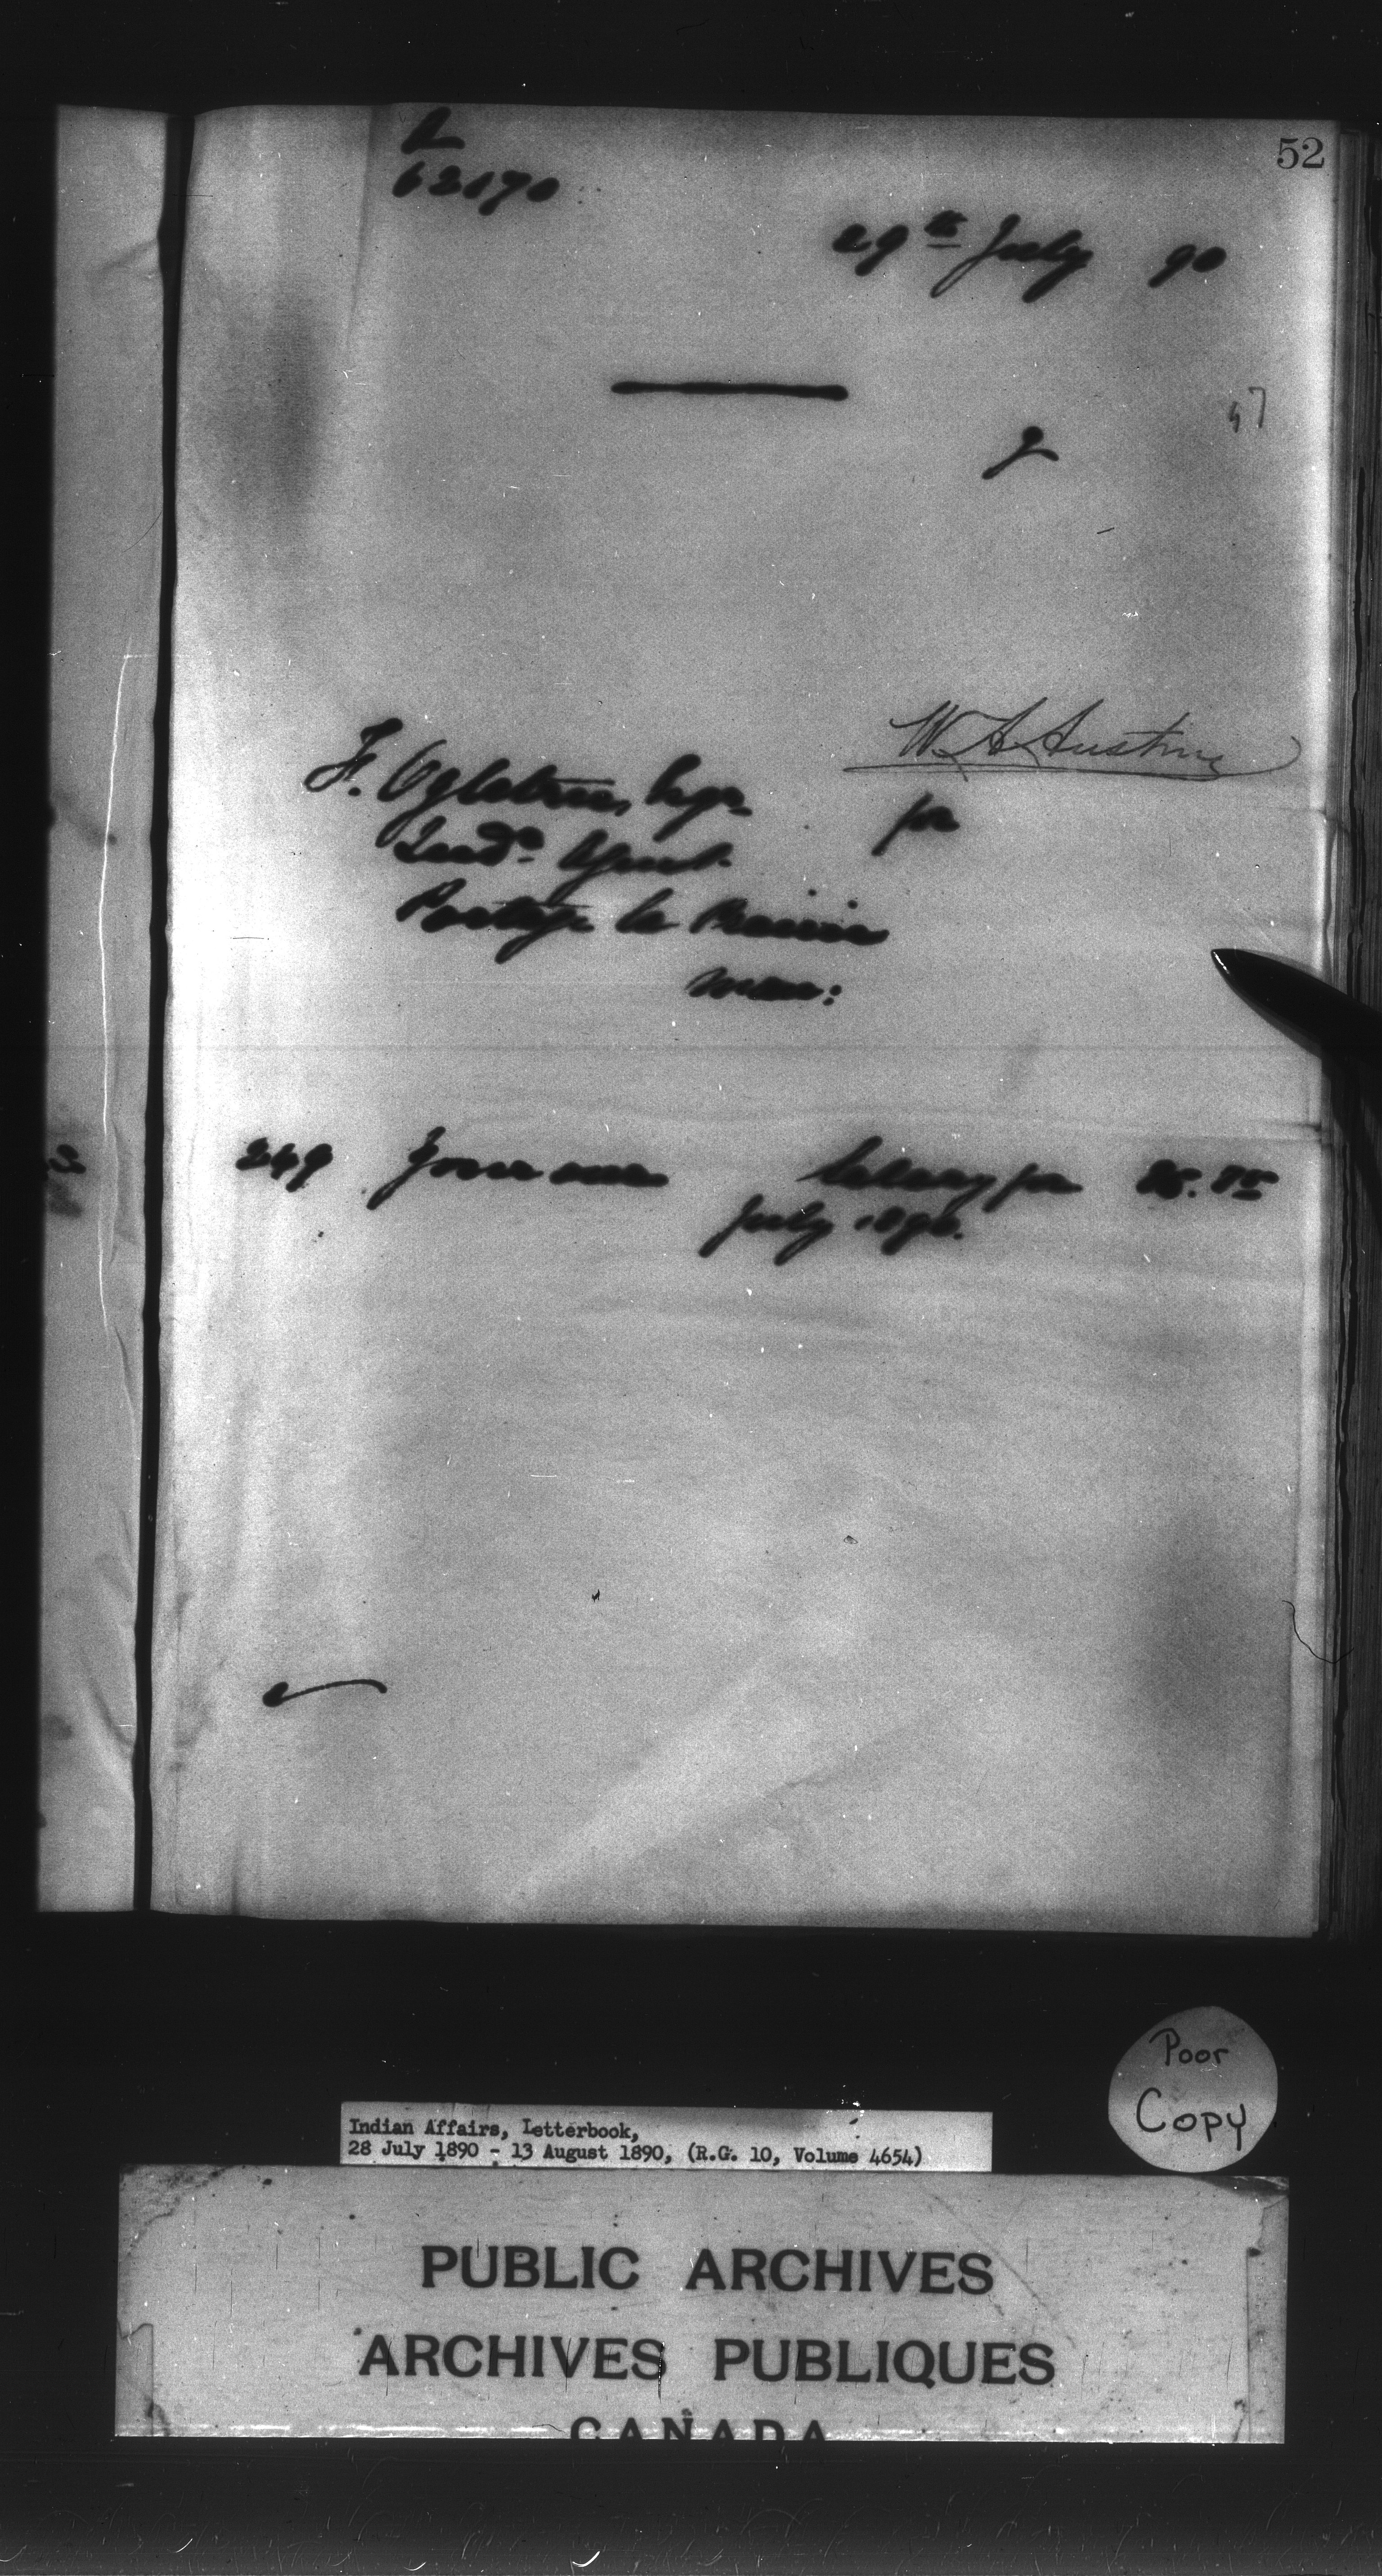 52
L
62170
29th July 90
47
W. A. Austin
F. Ogletree, Esqr.
for
Indn. Agent.
Portage la Prairie
Man:
249 Your own Salary for
July 1890.
Poor
Copy
Indian Affairs, Letterbook,
28 July 1890 - 13 August 1890, (R.G. 10, Volume 4654)
PUBLIC ARCHIVES
ARCHIVES PUBLIQUES
CANADA